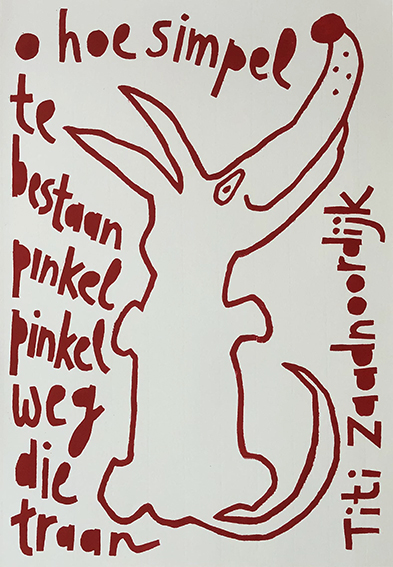 o hoe simpel
te
bestaan
pinkel
pinkel
weg
die
traan
Titi Zaadnoordijk